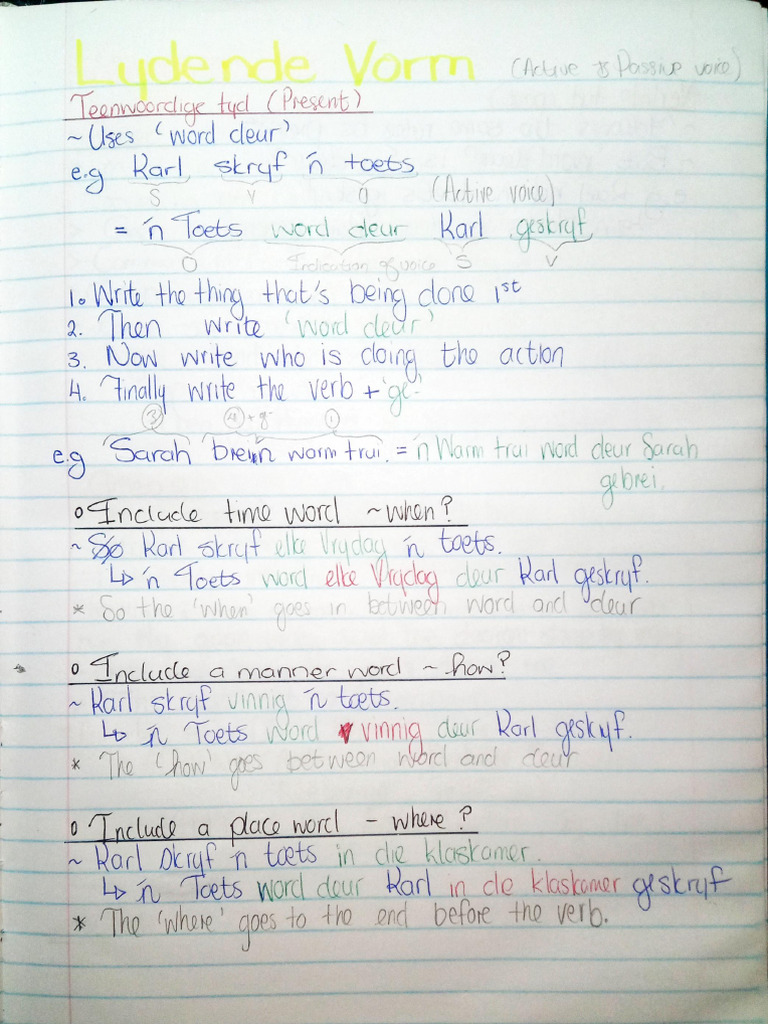 Lydende Vorm (Active & Passive voice)
Teenwoordige tyd (Present)
~ Uses 'word deur'
e.g Karl skryf 'n toets
S V O (Active voice)
= 'n Toets word deur Karl geskryf
O Indication of voice S V
1. Write the thing that's being done 1st
2. Then write 'word deur'
3. Now write who is doing the action
4. Finally write the verb + 'ge-'
3 4 + ge 1
e.g Sarah brei 'n warm trui. = 'n Warm trui word deur Sarah
gebrei.
o Include time word ~ when?
~ Karl skryf elke Vrydag 'n toets.
↳ 'n Toets word elke Vrydag deur Karl geskryf.
* So the 'when' goes in between word and deur
o Include a manner word ~ how?
~ Karl skryf vinnig 'n toets.
↳ 'n Toets word vinnig deur Karl geskyf.
* The 'how' goes between word and deur
o Include a place word - where?
~ Karl skryf 'n toets in die klaskamer.
↳ 'n Toets word deur Karl in die klaskamer geskryf
* The 'where' goes to the end before the verb.